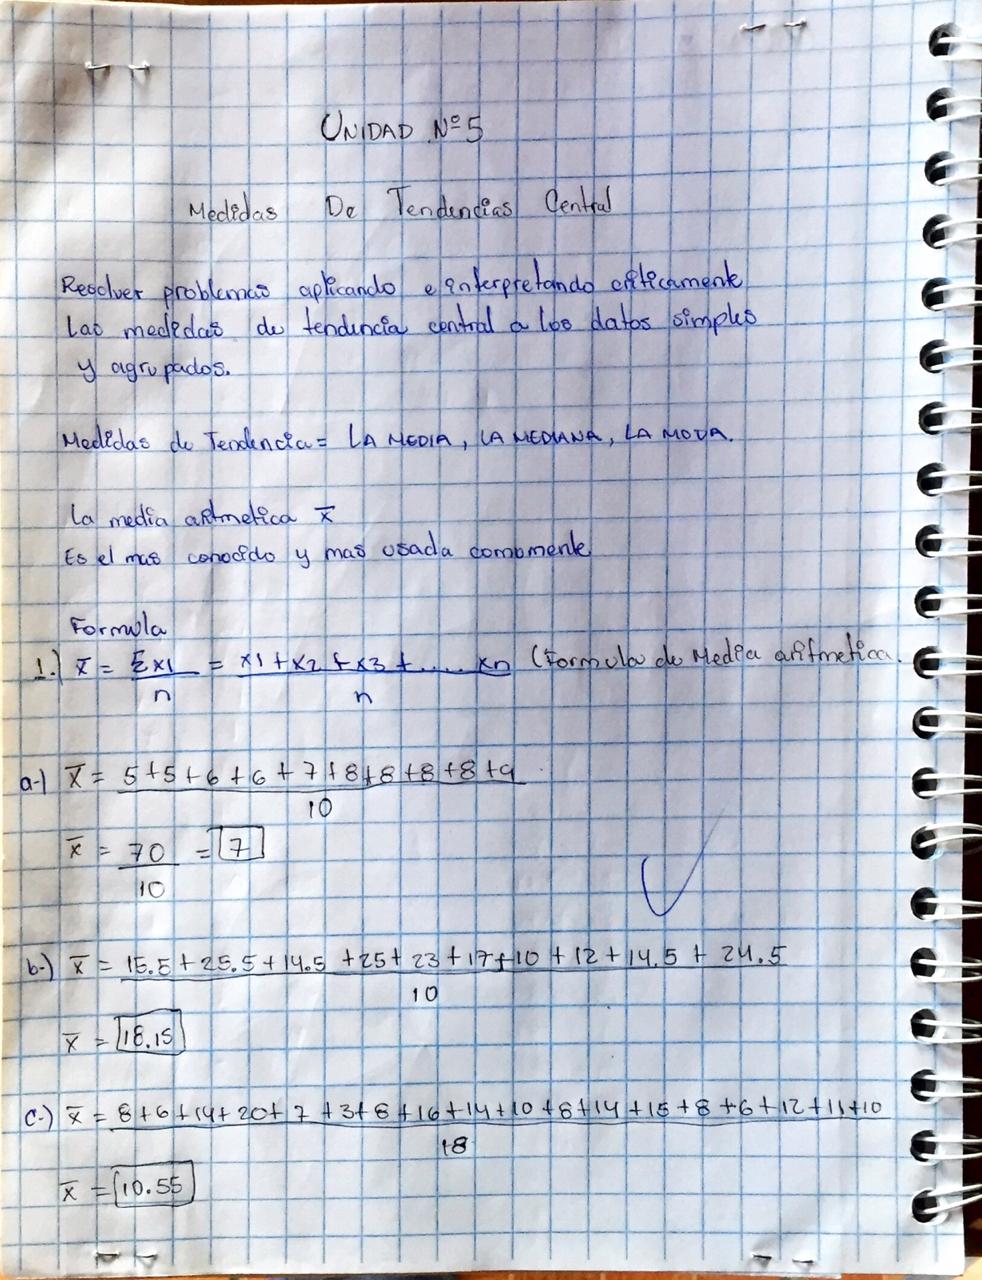 UNIDAD Nº5
Medidas De Tendencias Central
Resolver problemas aplicando e interpretando criticamente
Las medidas de tendencia central a los datos simples
y agrupados.
Medidas de Tendencia = LA MEDIA, LA MEDIANA, LA MODA.
La media aritmetica x̄
Es el mas conocido y mas usada comomente
Formula
1.) x̄ = Σx1 = x1 + x2 + x3 + .... xn (Formula de Media aritmetica.
n n
a-) x̄ = 5+5+6+6+7+8+8+8+8+9
10
x̄ = 70 = 7
10
b-) x̄ = 15.5 + 25.5 + 14.5 + 25 + 23 + 17 + 10 + 12 + 14.5 + 24.5
10
x̄ = 18.15
c-) x̄ = 8+6+14+20+7+3+8+16+14+10+8+14+15+8+6+12+11+10
18
x̄ = 10.55